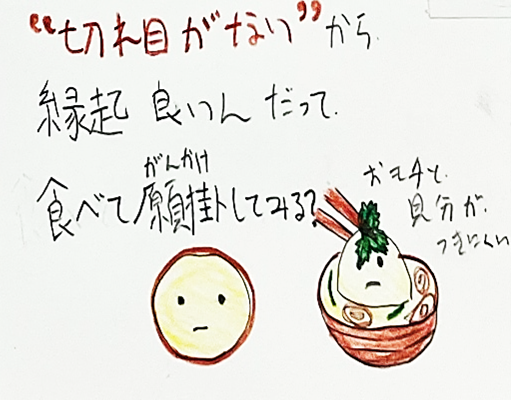 “切れ目がない”から
縁起 良いんだって。
がんかけ
食べて願掛してみる?
お モチと
見分が
つきにくい